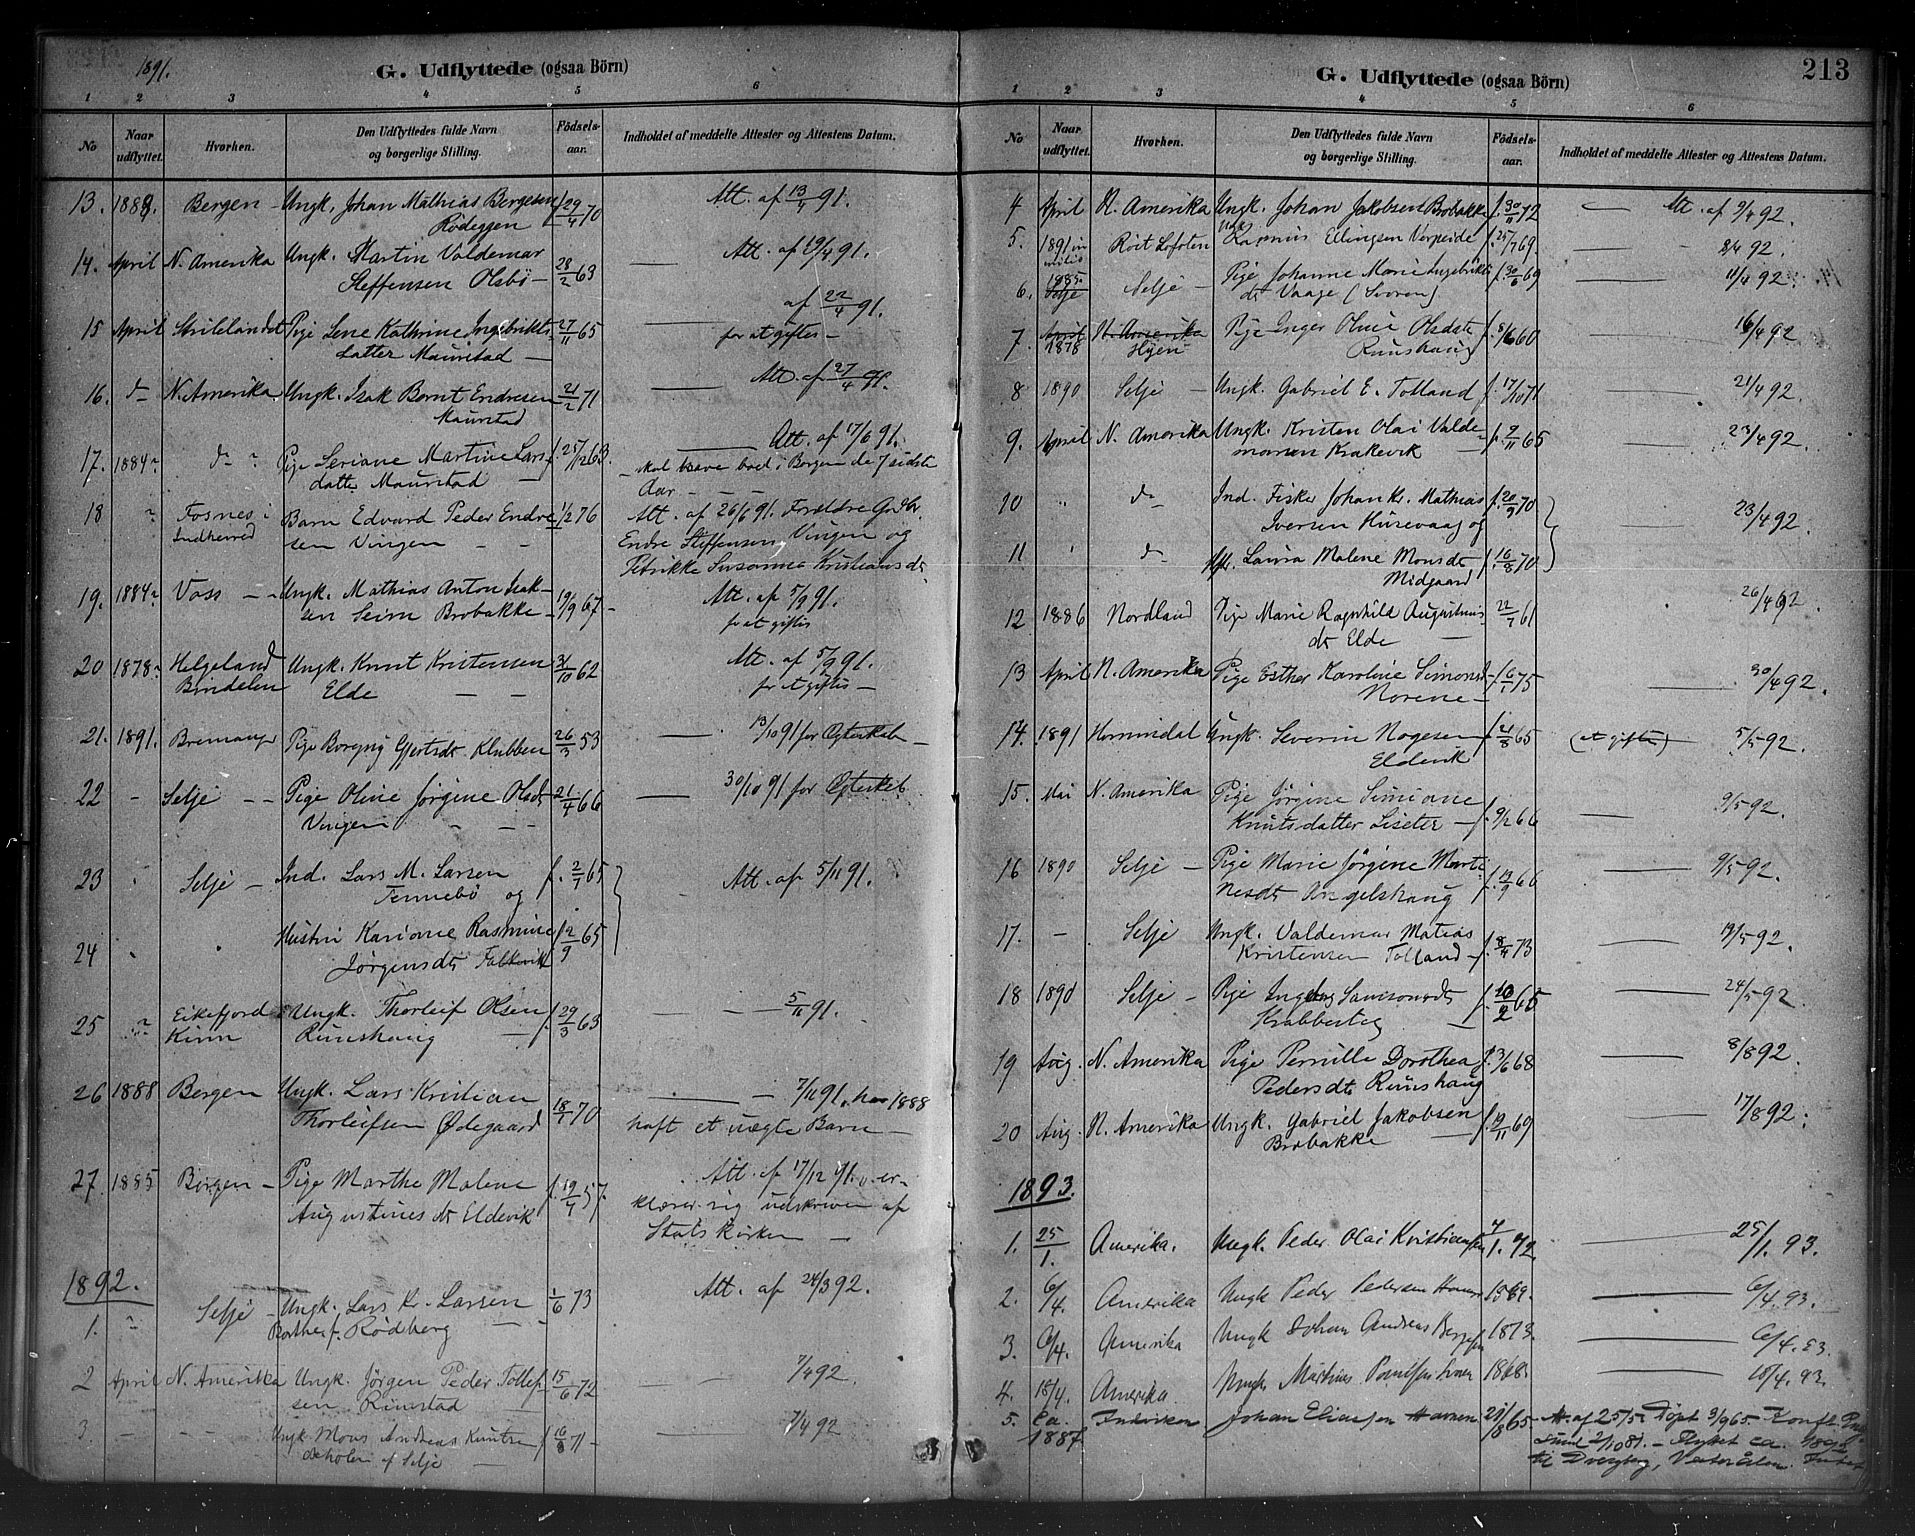 1891.
G. Udflyttede (ogsaa Börn)
1 2 3 4 5 6
No
Naar udflyttet.
Hvorhen.
Den Udflyttedes fulde Navn og borgerlige Stilling.
Födsels-aar.
Indholdet af meddelte Attester og Attestens Datum.
13. 1888. Bergen - Ungk. Johan Mathias Bergesen f. 29/4 70 Att. af 13/4 91.
Rödeggen
14. April N. Amerika Ungk. Martin Valdemar 28/2 63 Att. af 19/4 91.
Steffensen Olsbö
15 April Strilelandet Pige Lene Kathrine Ingebrikts- 27/11 65 af 22/4 91.
datter Maurstad — for at giftes -
16. d- N. Amerika Ungk. Isak Bernt Endresen 21/2 71 Att. af 27/4 91.
Maurstad
17. 1884 d- Pige Seriane Martine Lars f. 25/12 63. Att. af 17/6 91.
datter Maurstad - skal have boet i Bergen de 7 sidste
Aar - - -
18 Fosnes i Barn Edvard Peder Endre 1/2 76 Att. af 26/6 91. Forældre Gr. Br.
Indherred sen Vingen - - Endre Steffensen Vingen og
Petrikke Susanna Kristiansdr
19. 1884 Voss - Ungk. Mathias Anton Isak- 19/9 67 - Att. af 5/9 91.
sen Seim Brobakke - for at giftes
20 1878 Helgeland Ungk. Knut Kristensen 31/10 62 Att. af 5/9 91.
Bindalen Elde - - for at giftes -
21. 1891. Bremanger Pige Borgny Gjertsdr Klubben 26/3 53 13/10 91 for Ægteskab
22 - Selje - - Pige Oline Jørgine Olsdr 21/4 66 30/10 91 for Ægteskab
Vingen - - -
23 Selje - Ind. Lars M. Larsen f. 2/7 65 Att. af 5/11 91.
Tennebö og
24 Hustru Kariane Rasmine f. 2/9 65
Jörgensdr Falkevik
25 Eikefjord Ungk. Thorleif Olsen f. 29/3 63 - - 5/11 91.
Kinn Runshaug
26 1888 Bergen Ungk. Lars Kristian 18/1 70 - 7/11 91. har 1888
Thorleifsen Ødegaard haft et uægte Barn -
27. 1885 Bergen - Pige Marthe Malene f. 19/4 57. Att. af 17/12 91. er-
Augustines dr Eldevik klærer sig udskreven af
Stats kirken -
1892.
1. Selje - Ungk. Lars Kr. Larsen 1/6 73 Att. af 24/3 92.
Rödberg - -
2 April N. Amerika Ungk. Jørgen Peder Tollef- 15/6 72 7/4 92.
sen Rimstad -
3. - - Ungk Mons Andreas Knutsen f. 16/8 71 - 7/4 92
af Selje -
G. Udflyttede (ogsaa Börn)
213
1 2 3 4 5 6
No
Naar udflyttet.
Hvorhen.
Den Udflyttedes fulde Navn og borgerlige Stilling.
Födsels-aar.
Indholdet af meddelte Attester og Attestens Datum.
4 April N. Amerika Ungk. Johan Jakobsen Brobakke f. 30/11 72 Att. af 9/4 92.
5. 1891 Röst Lofoten Ungk. Rasmus Ellingsen Verpeide 69. 8/4 92.
6. 1885 Selje - Pige Johanne Marie Ingebrikts f. 30/6 69 11/4 92
dr Vaage (Svoren)
7 April N. Amerika Pige Inger Oline Olsdtr f. 8/6 60 16/4 92.
1878 Hyen Runshaug
8 1890 Selje - Ungk. Gabriel E. Totland f. 17/10 71 21/4 92.
9. April N. Amerika Ungk. Kristen Olai Valde- f. 9/11 65 23/4 92.
marsen Krakevik -
10 " d- Ind. Fisker Johan Kr. Mathias f. 20/9 70 23/4 92.
Iversen Husevaag og
11 d- Laura Malene Monsdr f. 16/8 70
Midgaard
12 1886 Nordland Pige Marie Ragnhild Augustinus 22/7 61 26/4 92
dr Elde -
13 April N. Amerika Pige Esther Karoline Simonsd f. 6/1 75 30/4 92.
Norene -
14. 1891 Hornindal Ungk. Severin Nogesen f. 21/8 65 (at giftes) 5/5 92.
Eldevik
15. Mai N. Amerika Pige Jörgine Simiane f. 9/2 66 9/5 92.
Knutsdatter Liseter -
16 1890 Selje - Pige Marie Jörgine Marti f. 19/9 66 9/5 92.
nesdr Angelshaug
17. - Selje Ungk. Valdemar Matias f. 8/4 73 19/5 92.
Kristensen Totland -
18 1890 Selje - Pige Ingeborg Samsonsdr f. 10/2 65 24/5 92.
Krabbesteg -
19 Aug. N. Amerika Pige Pernille Dorothea f. 3/6 68 8/8 92.
Pedersdr Runshaug
20 Aug. N. Amerika Ungk. Gabriel Jakobsen f. 19/11 69 17/8 92.
Brobakke -
1893.
1. 25/1. Amerika. Ungk. Peder Olai Kristiansen 4/1. 72 25/1. 93.
2. 6/4. Amerika Ungk Peder Pedersen 1869. 6/4. 93.
3. 6/4. Amerika Ungk Johan Andreas 1873. 6/4. 93.
4. 18/4. Amerika. Ungk Martines Paulsen 1868. 18/4. 93.
5. Ca. 1887 Johan Eliassen Havnen 21/8 65 Att. af 25/5. Döpt 3/9 65. Konf.
sund 2/10 81. - Flyttet ca. 1892
til Dverberg, Vesterålen.